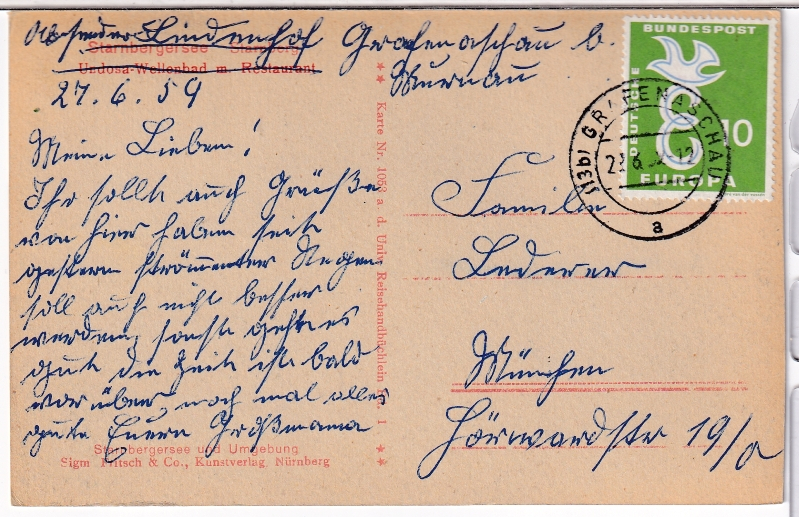 Absender Lindenhof Grafenaschau b.
Murnau
Starnbergersee Starnberg
Undosa-Wellenbad m. Restaurant
27.6.59
Meine Lieben!
Ihr sollt auch Grüße
von hier haben seit
gestern strömmenter Regen
soll auch nicht besser
werden, sonst geht es
gut die Zeit ist bald
vorüber, noch mal alles
gute Euere Großmama
Starnbergersee und Umgebung
Sigm Fritsch & Co., Kunstverlag, Nürnberg
** Karte Nr. 1052 a d. Univ. Reisehandbüchlein 1 **
Familie
Lederer
München
Hörwardstr 19/0
DEUTSCHE BUNDESPOST
10
EUROPA
(13b) GRAFENASCHAU
a